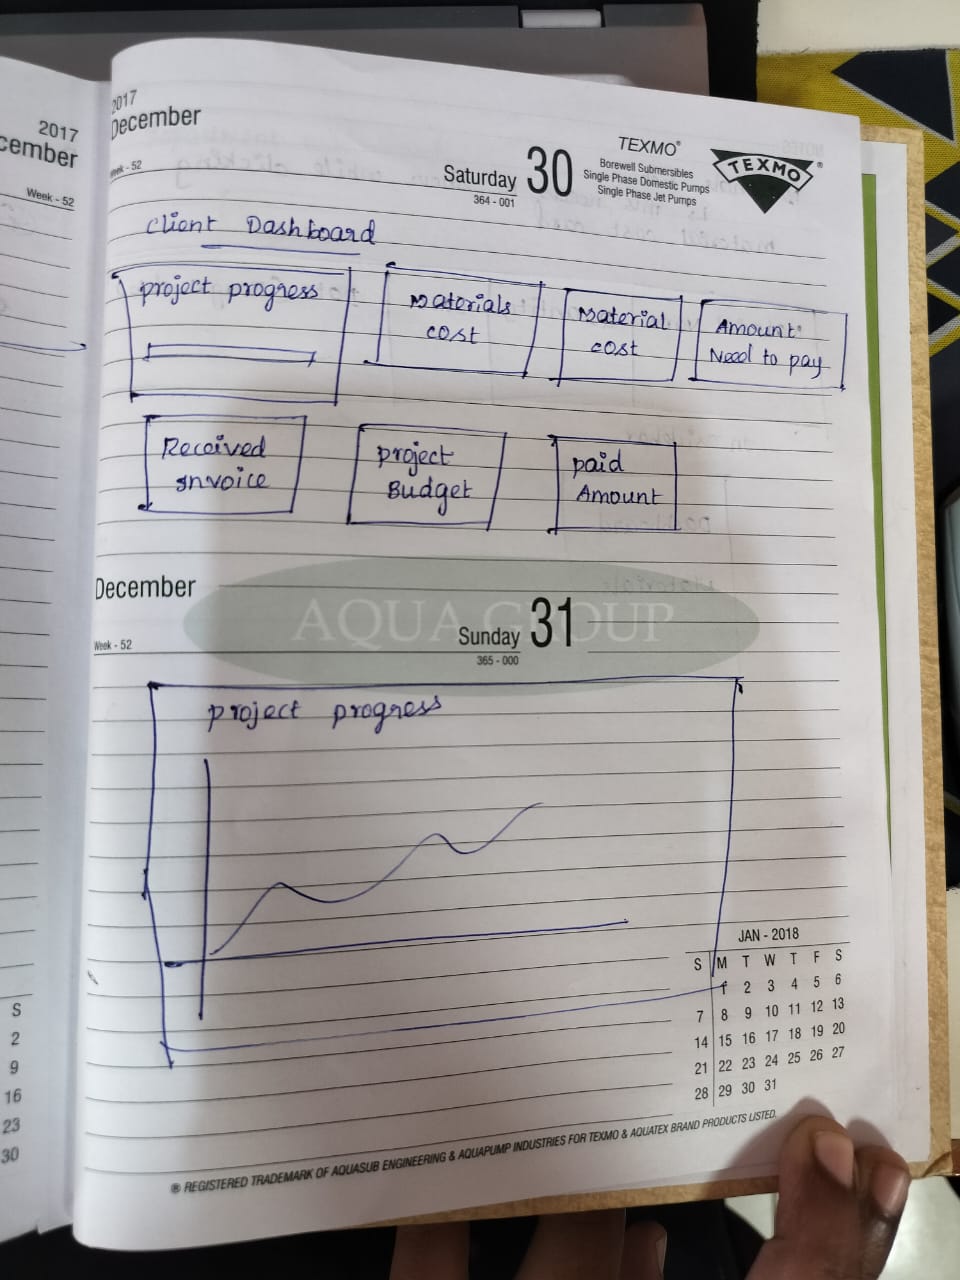 2017
cember
Week - 52
2017
December
Week - 52
Saturday 30
364 - 001
TEXMO®
Borewell Submersibles
Single Phase Domestic Pumps
Single Phase Jet Pumps
TEXMO®
Client Dashboard
project progress
Materials
cost
Material
cost
Amount
Need to pay
Received
Invoice
project
Budget
paid
Amount
December
AQUA GROUP
Week - 52
Sunday 31
365 - 000
project progress
JAN - 2018
S M T W T F S
1 2 3 4 5 6
7 8 9 10 11 12 13
14 15 16 17 18 19 20
21 22 23 24 25 26 27
28 29 30 31
S
2
9
16
23
30
® REGISTERED TRADEMARK OF AQUASUB ENGINEERING & AQUAPUMP INDUSTRIES FOR TEXMO & AQUATEX BRAND PRODUCTS LISTED.